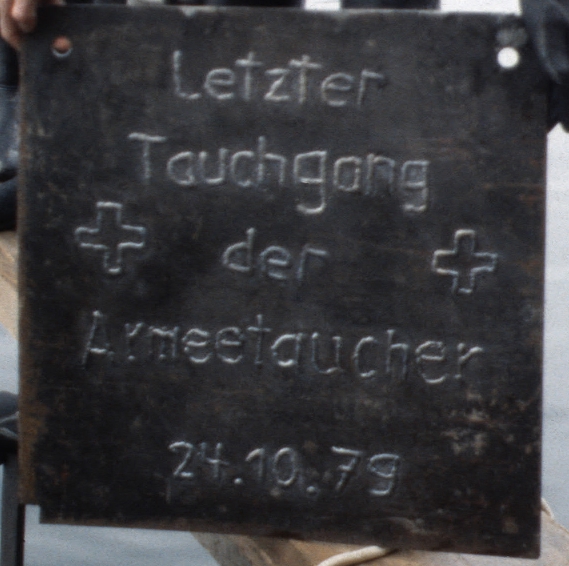 Letzter
Tauchgang
der
Armeetaucher
24.10.79